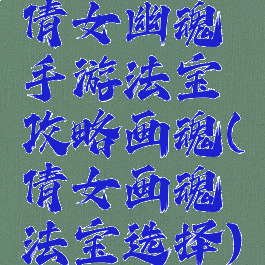 倩女幽魂
手游法宝
攻略画魂(
倩女画魂
法宝选择)